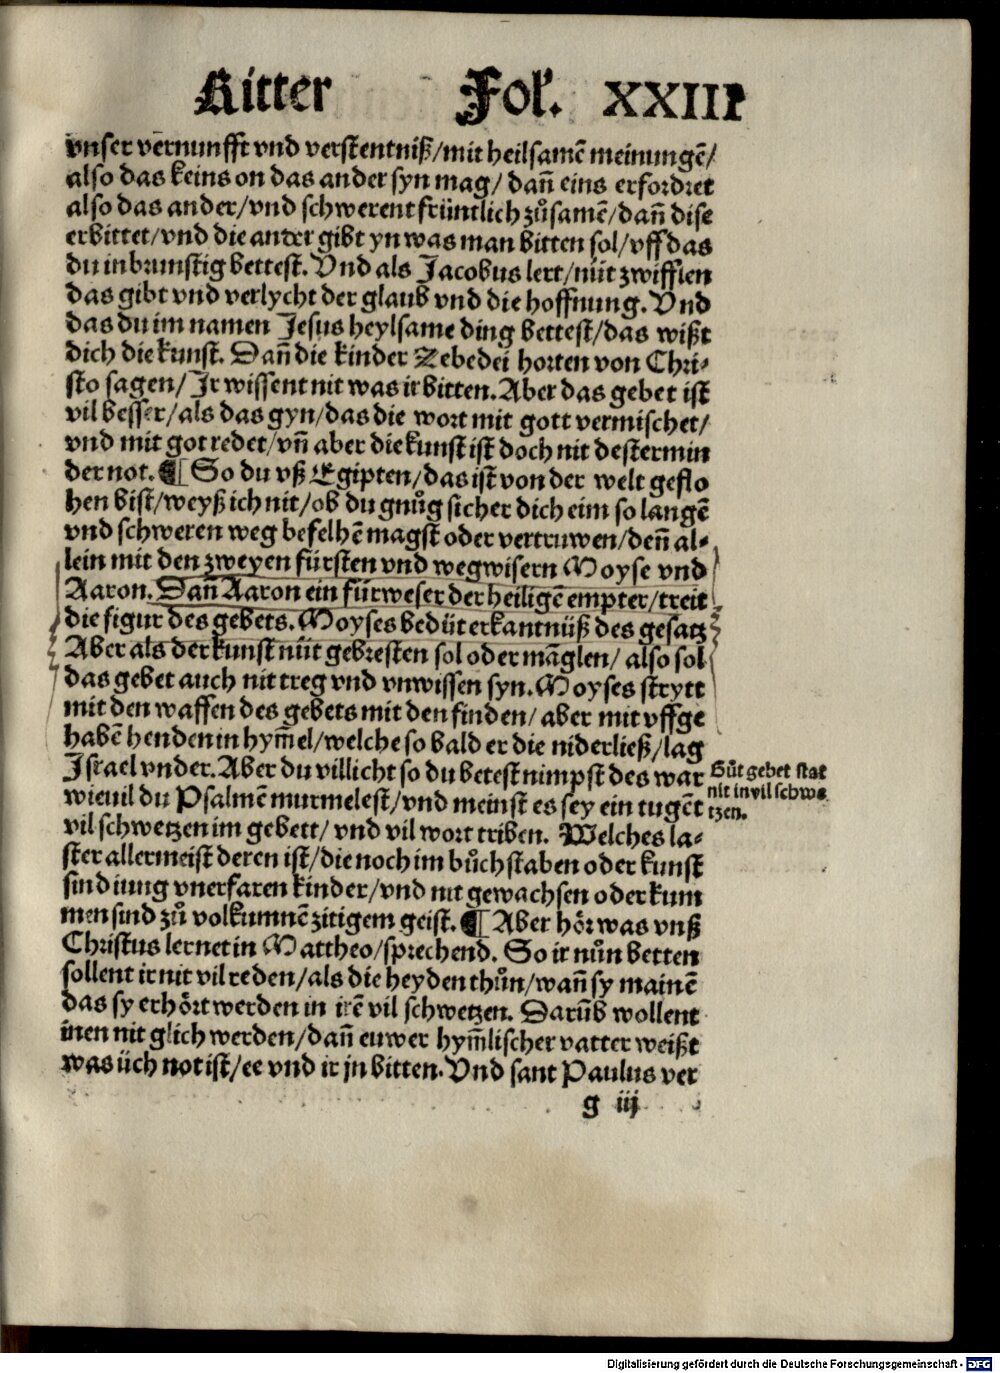 Ritter Fol. XXIII
vnser vernunfft vnd verstentniß/mit heilsamē meinungē/
also das keins on das ander syn mag/ dañ eins erfordret
also das ander/vnd schwerent früntlich zůsamē/dañ dise
erbittet/vnd die ander gibt yn was man bitten sol/vff das
du inbrunstig bettest. Vnd als Jacobus lert/nüt zwifflen
das gibt vnd verlycht der glaub vnd die hoffnung. Vnd
das du im namen Jesus heylsame ding bettest/das wißt
dich die kunst. Dañ die kinder Zebedei horten von Chri-
sto sagen/ Ir wissent nit was ir bitten. Aber das gebet ist
vil besser/als das gyn/das die wort mit gott vermischet/
vnd mit got redet/vñ aber die kunst ist doch nit destermin
der not. ¶ So du vß Egipten/das ist von der welt geflo
hen bist/weyß ich nit/ob du gnůg sicher dich eim so langē
vnd schweren weg befelhē magst oder vertruwen/deñ al-
lein mit den zweyen fürsten vnd wegwisern Moyse vnd
Aaron. Dañ Aaron ein fürweser der heiligē empter/treit
die figur des gebets. Moyses bedüt erkantnüß des gesatz
Aber als der kunst nüt gebresten sol oder māglen/ also sol
das gebet auch nit treg vnd vnwissen syn. Moyses strytt
mit den waffen des gebets mit den finden/ aber mit vffge
habē henden in hym̄el/welche so bald er die niderließ/lag
Israel vnder. Aber du villicht so du betest nimpst des war
wieuil du Psalmē murmelest/vnd meinst es sey ein tugēt
vil schwetzen im gebett/ vnd vil wort triben. Welches la-
ster allermeist deren ist/die noch im bůchstaben oder kunst
sind iung vnerfaren kinder/vnd nit gewachsen oder kum
men sind zů volkumnē zitigem geist. ¶ Aber hör was vnß
Christus lernet in Mattheo/sprechend. So ir nůn betten
sollent ir nit vil reden/als die heyden thůn/wañ sy mainē
das sy erhört werden in irē vil schwetzen. Darūb wollent
inen nit glich werden/dañ euwer hym̄lischer vatter weißt
was üch not ist/ee vnd ir jn bitten. Vnd sant Paulus ver
g iij
Gůt gebet stat
nit in vil schwe
tzen.
Digitalisierung gefördert durch die Deutsche Forschungsgemeinschaft - DFG